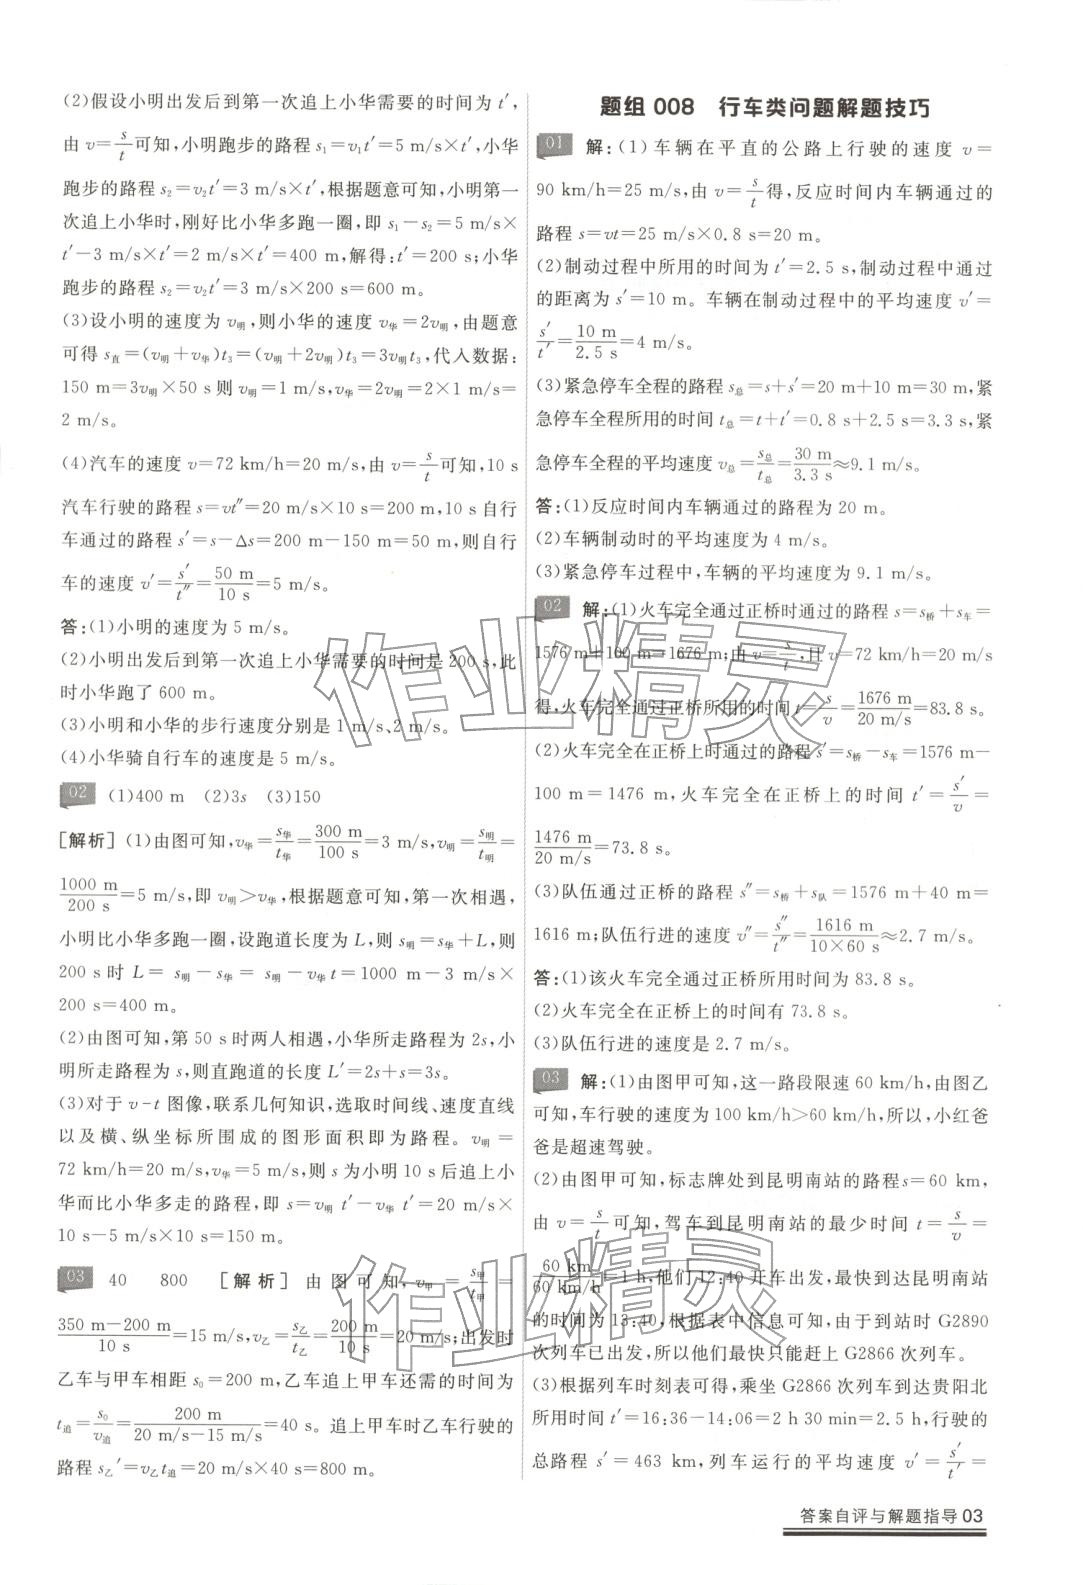 (2)假设小明出发后到第一次追上小华需要的时间为 t′,
由 v=s/t可知,小明跑步的路程 s₁=v₁t′=5 m/s×t′,小华
跑步的路程 s₂=v₂t′=3 m/s×t′,根据题意可知,小明第一
次追上小华时,刚好比小华多跑一圈,即 s₁-s₂=5 m/s×
t′-3 m/s×t′=2 m/s×t′=400 m,解得:t′=200 s;小华
跑步的路程 s₂=v₂t′=3 m/s×200 s=600 m。
(3)设小明的速度为 v明,则小华的速度 v华=2v明,由题意
可得 s直=(v明+v华)t₃=(v明+2v明)t₃=3v明t₃,代入数据:
150 m=3v明×50 s 则 v明=1 m/s,v华=2v明=2×1 m/s=
2 m/s。
(4)汽车的速度 v=72 km/h=20 m/s,由 v=s/t可知,10 s
汽车行驶的路程 s=vt″=20 m/s×10 s=200 m,10 s 自行
车通过的路程 s′=s-Δs=200 m-150 m=50 m,则自行
车的速度 v′=s′/t″=50 m/10 s=5 m/s。
答:(1)小明的速度为 5 m/s。
(2)小明出发后到第一次追上小华需要的时间是 200 s,此
时小华跑了 600 m。
(3)小明和小华的步行速度分别是 1 m/s、2 m/s。
(4)小华骑自行车的速度是 5 m/s。
02 (1)400 m (2)3s (3)150
[解析] (1)由图可知,v华=s华/t华=300 m/100 s=3 m/s,v明=s明/t明=
1000 m/200 s=5 m/s,即 v明>v华,根据题意可知,第一次相遇,
小明比小华多跑一圈,设跑道长度为 L,则 s明=s华+L,则
200 s 时 L= s明-s华= s明-v华t=1000 m-3 m/s×
200 s=400 m。
(2)由图可知,第 50 s 时两人相遇,小华所走路程为 2s,小
明所走路程为 s,则直跑道的长度 L′=2s+s=3s。
(3)对于 v-t 图像,联系几何知识,选取时间线、速度直线
以及横、纵坐标所围成的图形面积即为路程。v明=
72 km/h=20 m/s,v华=5 m/s,则 s 为小明 10 s 后追上小
华而比小华多走的路程,即 s=v明 t′-v华 t′=20 m/s×
10 s-5 m/s×10 s=150 m。
03 40 800 [解析] 由图可知,v甲=s甲/t甲=
350 m-200 m/10 s=15 m/s,v乙=s乙/t乙=200 m/10 s=20 m/s;出发时
乙车与甲车相距 s₀=200 m,乙车追上甲车还需的时间为
t追=s₀/v追=200 m/20 m/s-15 m/s=40 s。追上甲车时乙车行驶的
路程 s乙′=v乙t追=20 m/s×40 s=800 m。
题组 008 行车类问题解题技巧
01 解:(1)车辆在平直的公路上行驶的速度 v=
90 km/h=25 m/s,由 v=s/t得,反应时间内车辆通过的
路程 s=vt=25 m/s×0.8 s=20 m。
(2)制动过程中所用的时间为 t′=2.5 s,制动过程中通过
的距离为 s′=10 m。车辆在制动过程中的平均速度 v′=
s′/t′=10 m/2.5 s=4 m/s。
(3)紧急停车全程的路程 s总=s+s′=20 m+10 m=30 m,紧
急停车全程所用的时间 t总=t+t′=0.8 s+2.5 s=3.3 s,紧
急停车全程的平均速度 v总=s总/t总=30 m/3.3 s≈9.1 m/s。
答:(1)反应时间内车辆通过的路程为 20 m。
(2)车辆制动时的平均速度为 4 m/s。
(3)紧急停车过程中,车辆的平均速度为 9.1 m/s。
02 解:(1)火车完全通过正桥时通过的路程 s=s桥+s车=
1576 m+100 m=1676 m;由 v=s/t,且 v=72 km/h=20 m/s
得,火车完全通过正桥所用的时间 t=s/v=1676 m/20 m/s=83.8 s。
(2)火车完全在正桥上时通过的路程 s′=s桥-s车=1576 m-
100 m=1476 m,火车完全在正桥上的时间 t′=s′/v=
1476 m/20 m/s=73.8 s。
(3)队伍通过正桥的路程 s″=s桥+s队=1576 m+40 m=
1616 m;队伍行进的速度 v″=s″/t″=1616 m/10×60 s≈2.7 m/s。
答:(1)该火车完全通过正桥所用时间为 83.8 s。
(2)火车完全在正桥上的时间有 73.8 s。
(3)队伍行进的速度是 2.7 m/s。
03 解:(1)由图甲可知,这一路段限速 60 km/h,由图乙
可知,车行驶的速度为 100 km/h>60 km/h,所以,小红爸
爸是超速驾驶。
(2)由图甲可知,标志牌处到昆明南站的路程s=60 km,
由 v=s/t可知,驾车到昆明南站的最少时间 t=s/v=
60 km/60 km/h=1 h,他们 12:40 开车出发,最快到达昆明南站
的时间为 13:40,根据表中信息可知,由于到站时 G2890
次列车已出发,所以他们最快只能赶上 G2866 次列车。
(3)根据列车时刻表可得,乘坐 G2866 次列车到达贵阳北
所用时间 t′=16:36-14:06=2 h 30 min=2.5 h,行驶的
总路程 s′=463 km,列车运行的平均速度 v′=s′/t′=
答案自评与解题指导 03
作业精灵
作业精灵